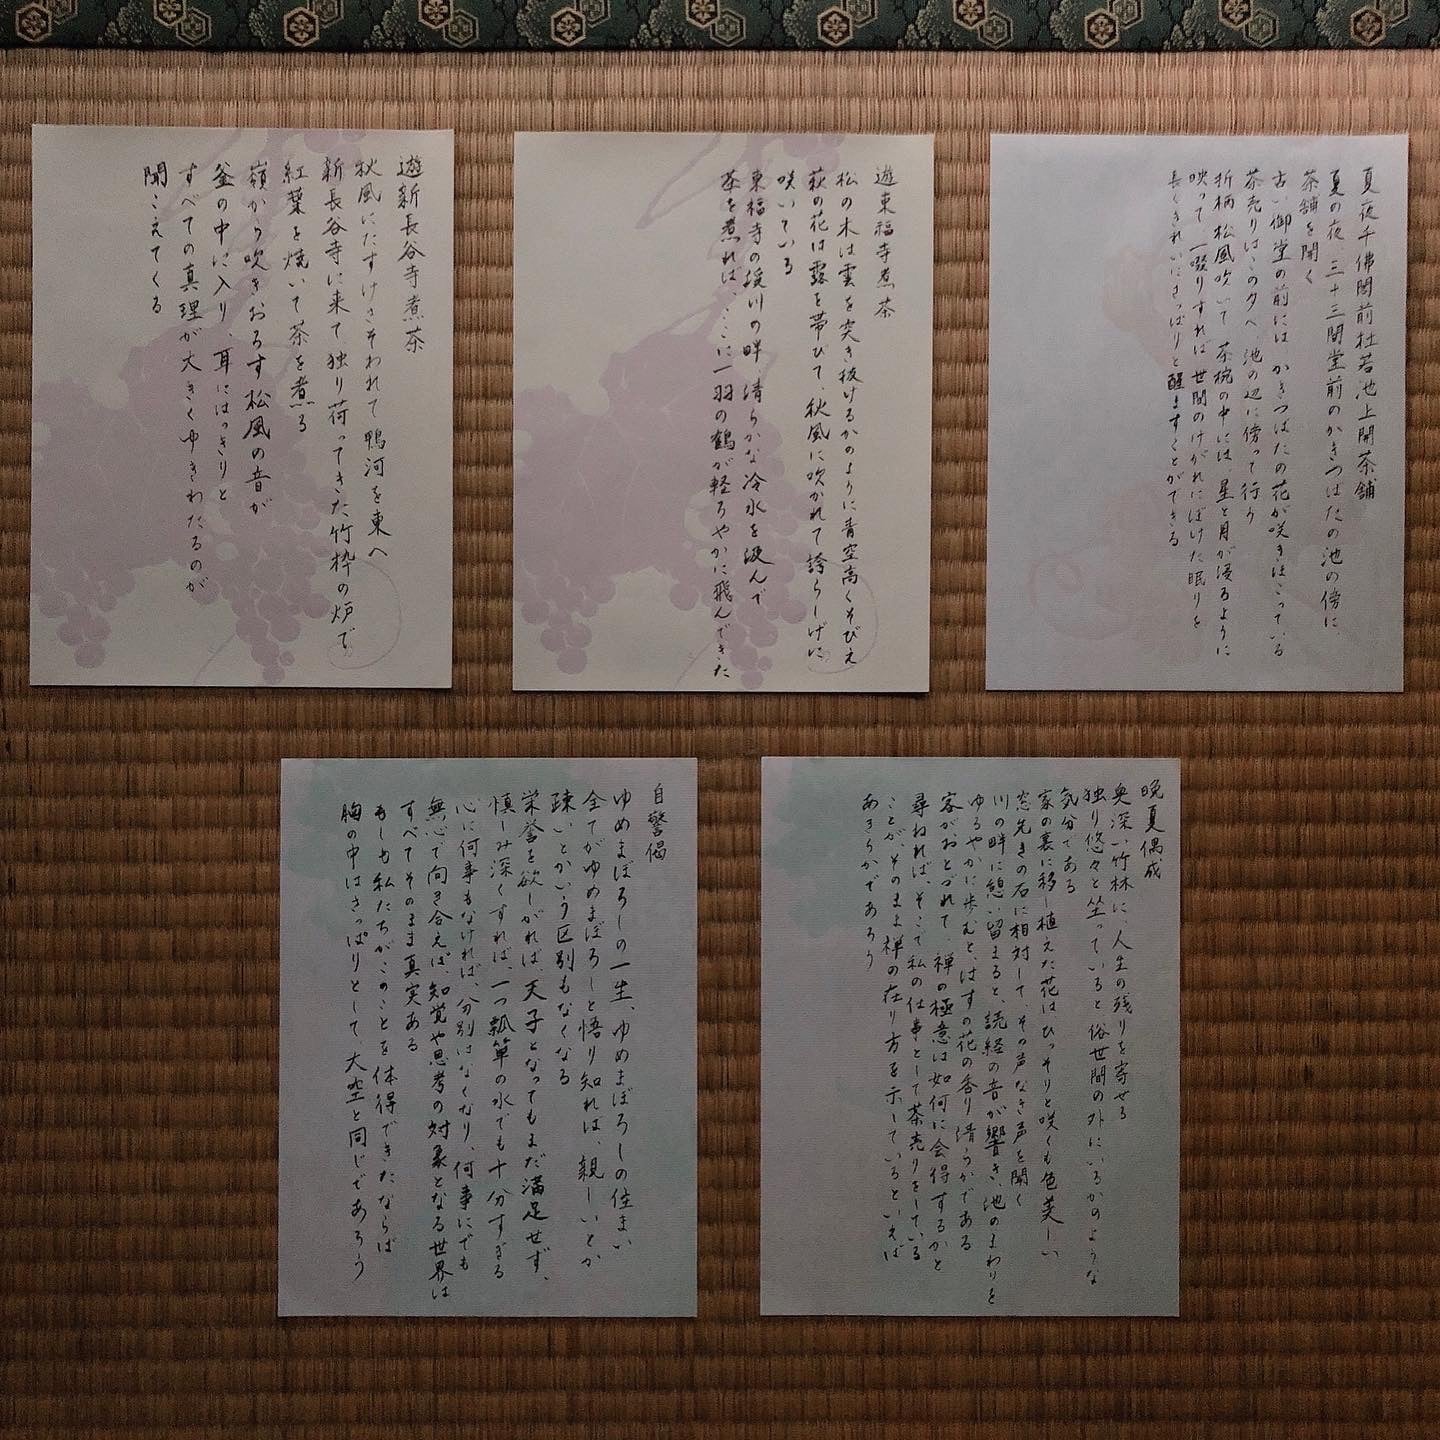 夏夜千佛閣前杜若池上開茶舗
夏の夜 三十三間堂前のかきつばたの池の傍に、
茶舗を開く
古い御堂の前には かきつばたの花が咲きほこっている
茶売りはこの夕べ 池の辺に傍って行う
折柄 松風吹いて 茶椀の中には、星と月が浸るように
映って、一啜りすれば 世間のけがれにぼけた眠りを
長くきれいにさっぱりと醒ますことができる
遊東福寺煮茶
松の木は雲を突き抜けるかのように青空高くそびえ
萩の花は露を帯びて、秋風に吹かれて誇らしげに
咲いている
東福寺の渓川の畔 清らかな冷水を汲んで
茶を煮れば、ここに一羽の鶴が軽ろやかに飛んできた
遊新長谷寺煮茶
秋風にたすけさそわれて鴨河を東へ
新長谷寺に来て独り荷ってきた竹枠の炉で
紅葉を焼いて茶を煮る
嶺から吹きおろす松風の音が
釜の中に入り、耳にはっきりと
すべての真理が大きくゆきわたるのが
聞こえてくる
晩夏偶成
奥深い竹林に、人生の残りを寄せる
独り悠々と坐っていると俗世間の外にいるかのような
気分である
家の裏に移し植えた花はひっそりと咲くも色美しい
窓先きの石に相対して、その声なき声を聞く
川の畔に憩い留まると、読経の音が響き、池のまわりを
ゆるやかに歩むと、はすの花の香り清らかである
客がおとづれて、禅の極意は如何に会得するかと
尋ねれば、そこで私の仕事として茶売りをしている
ことが、そのまま禅の在り方を示しているといえば
あきらかであろう
自警偈
ゆめまぼろしの一生、ゆめまぼろしの住まい
全てがゆめまぼろしと悟り知れば、親しいとか
疎いとかいう区別もなくなる
栄誉を欲しがれば、天子となってもまだ満足せず、
慎しみ深くすれば、一つ瓢箪の水でも十分すぎる
心に何事もなければ、分別はなくなり、何事にでも
無心で向き合えば、知覚や思考の対象となる世界は
すべてそのまま真実ある
もしも私たちがこのことを体得できたならば
胸の中はさっぱりとして大空と同じであろう